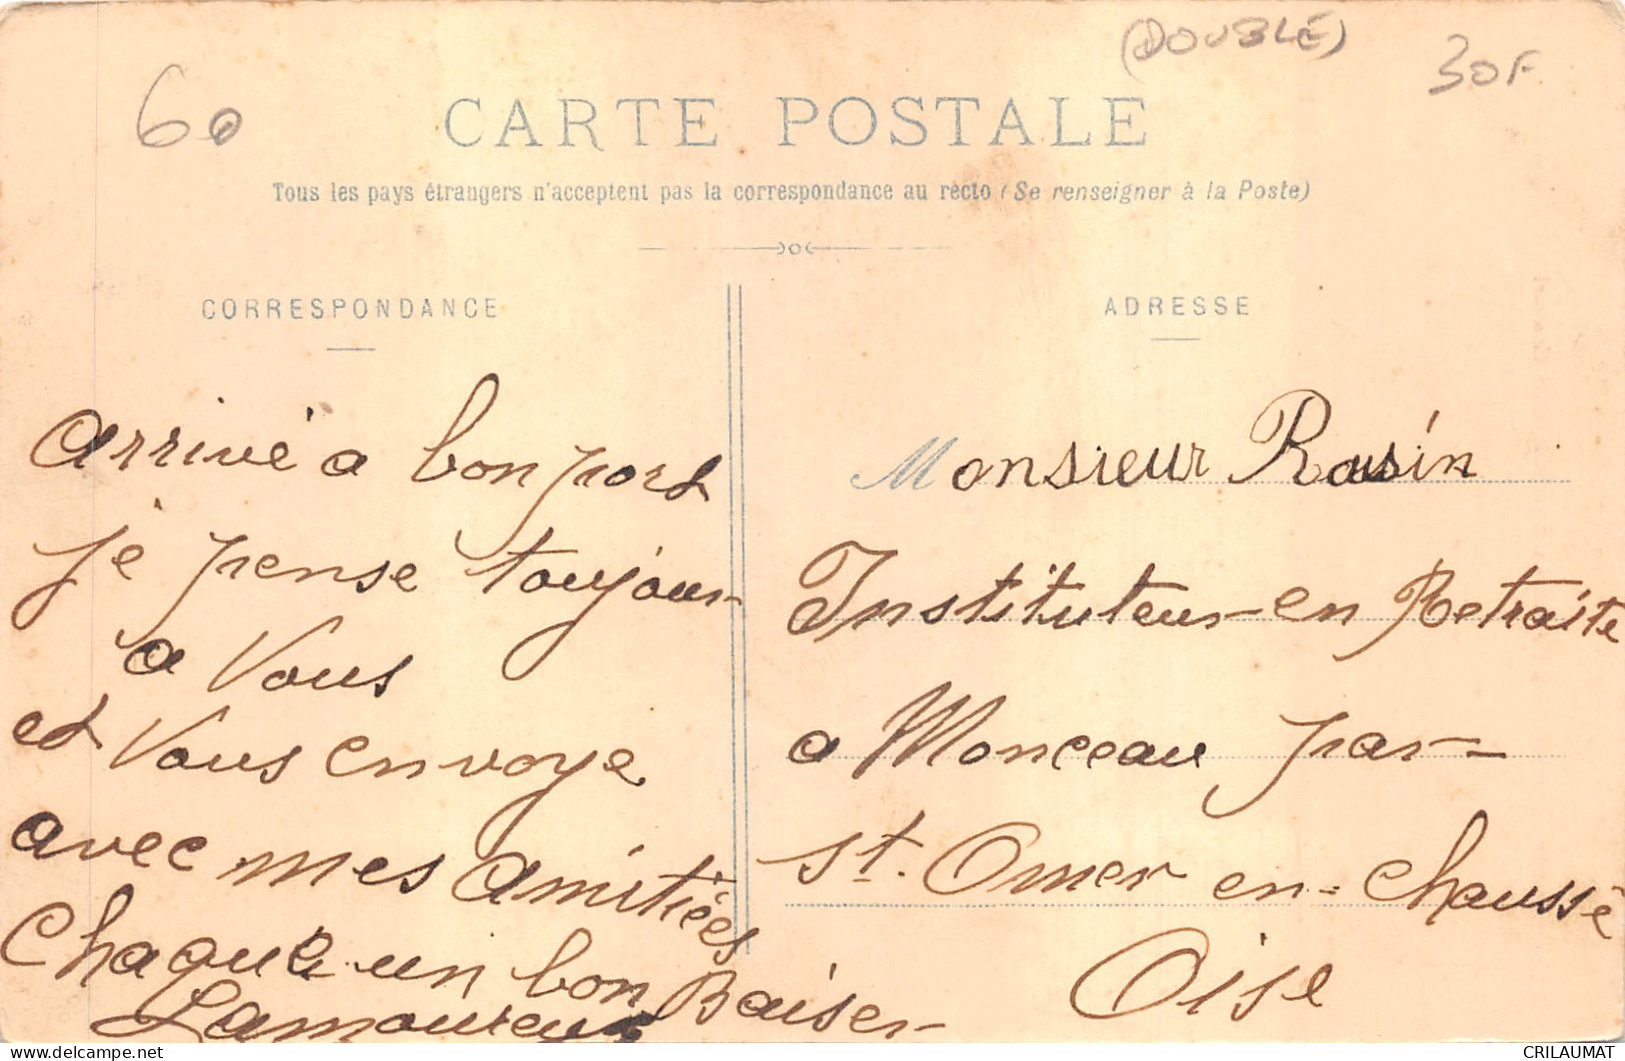 (DOUBLE)
30F
60
CARTE POSTALE
Tous les pays étrangers n'acceptent pas la correspondance au recto (Se renseigner à la Poste)
CORRESPONDANCE
arrivé a bon port
je pense toujours
a Vous
et Vous envoye
avec mes amitiées
Chaque un bon Baiser
Lamoureux
ADRESSE
Monsieur Rasin
Instituteur en Retraite
a Monceau par
St. Omer en-chaussé
Oise
CRILAUMAT